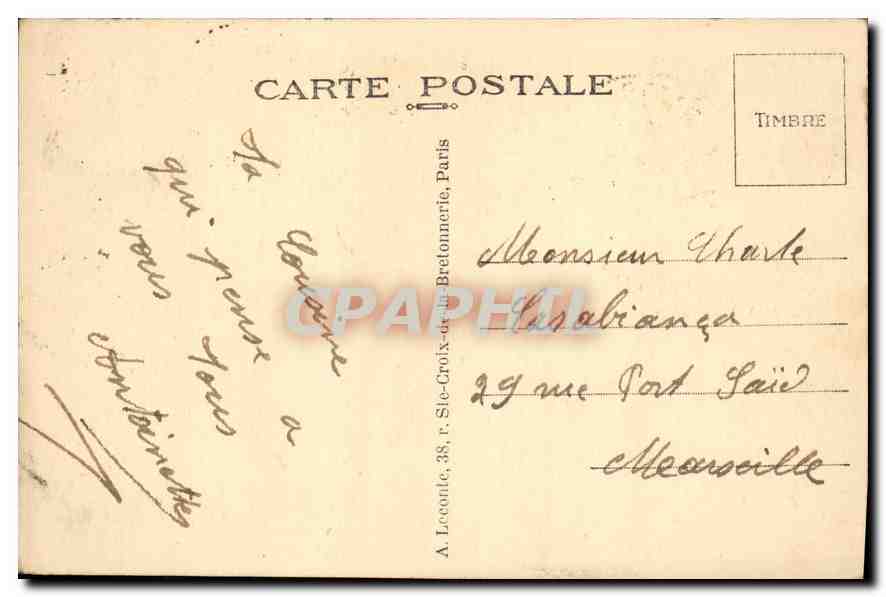 CARTE POSTALE
TIMBRE
Ta Cousine
qui pense a
vous tous
Antoinette
A. Leconte, 38, r. Ste-Croix-de-la-Bretonnerie, Paris
Monsieur Charle
Casabianca
29 rue Port Saïd
Marseille
CPAPHIL